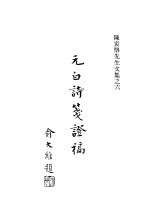 陳寅恪先生文集之六
元白詩箋證稿
俞大維題